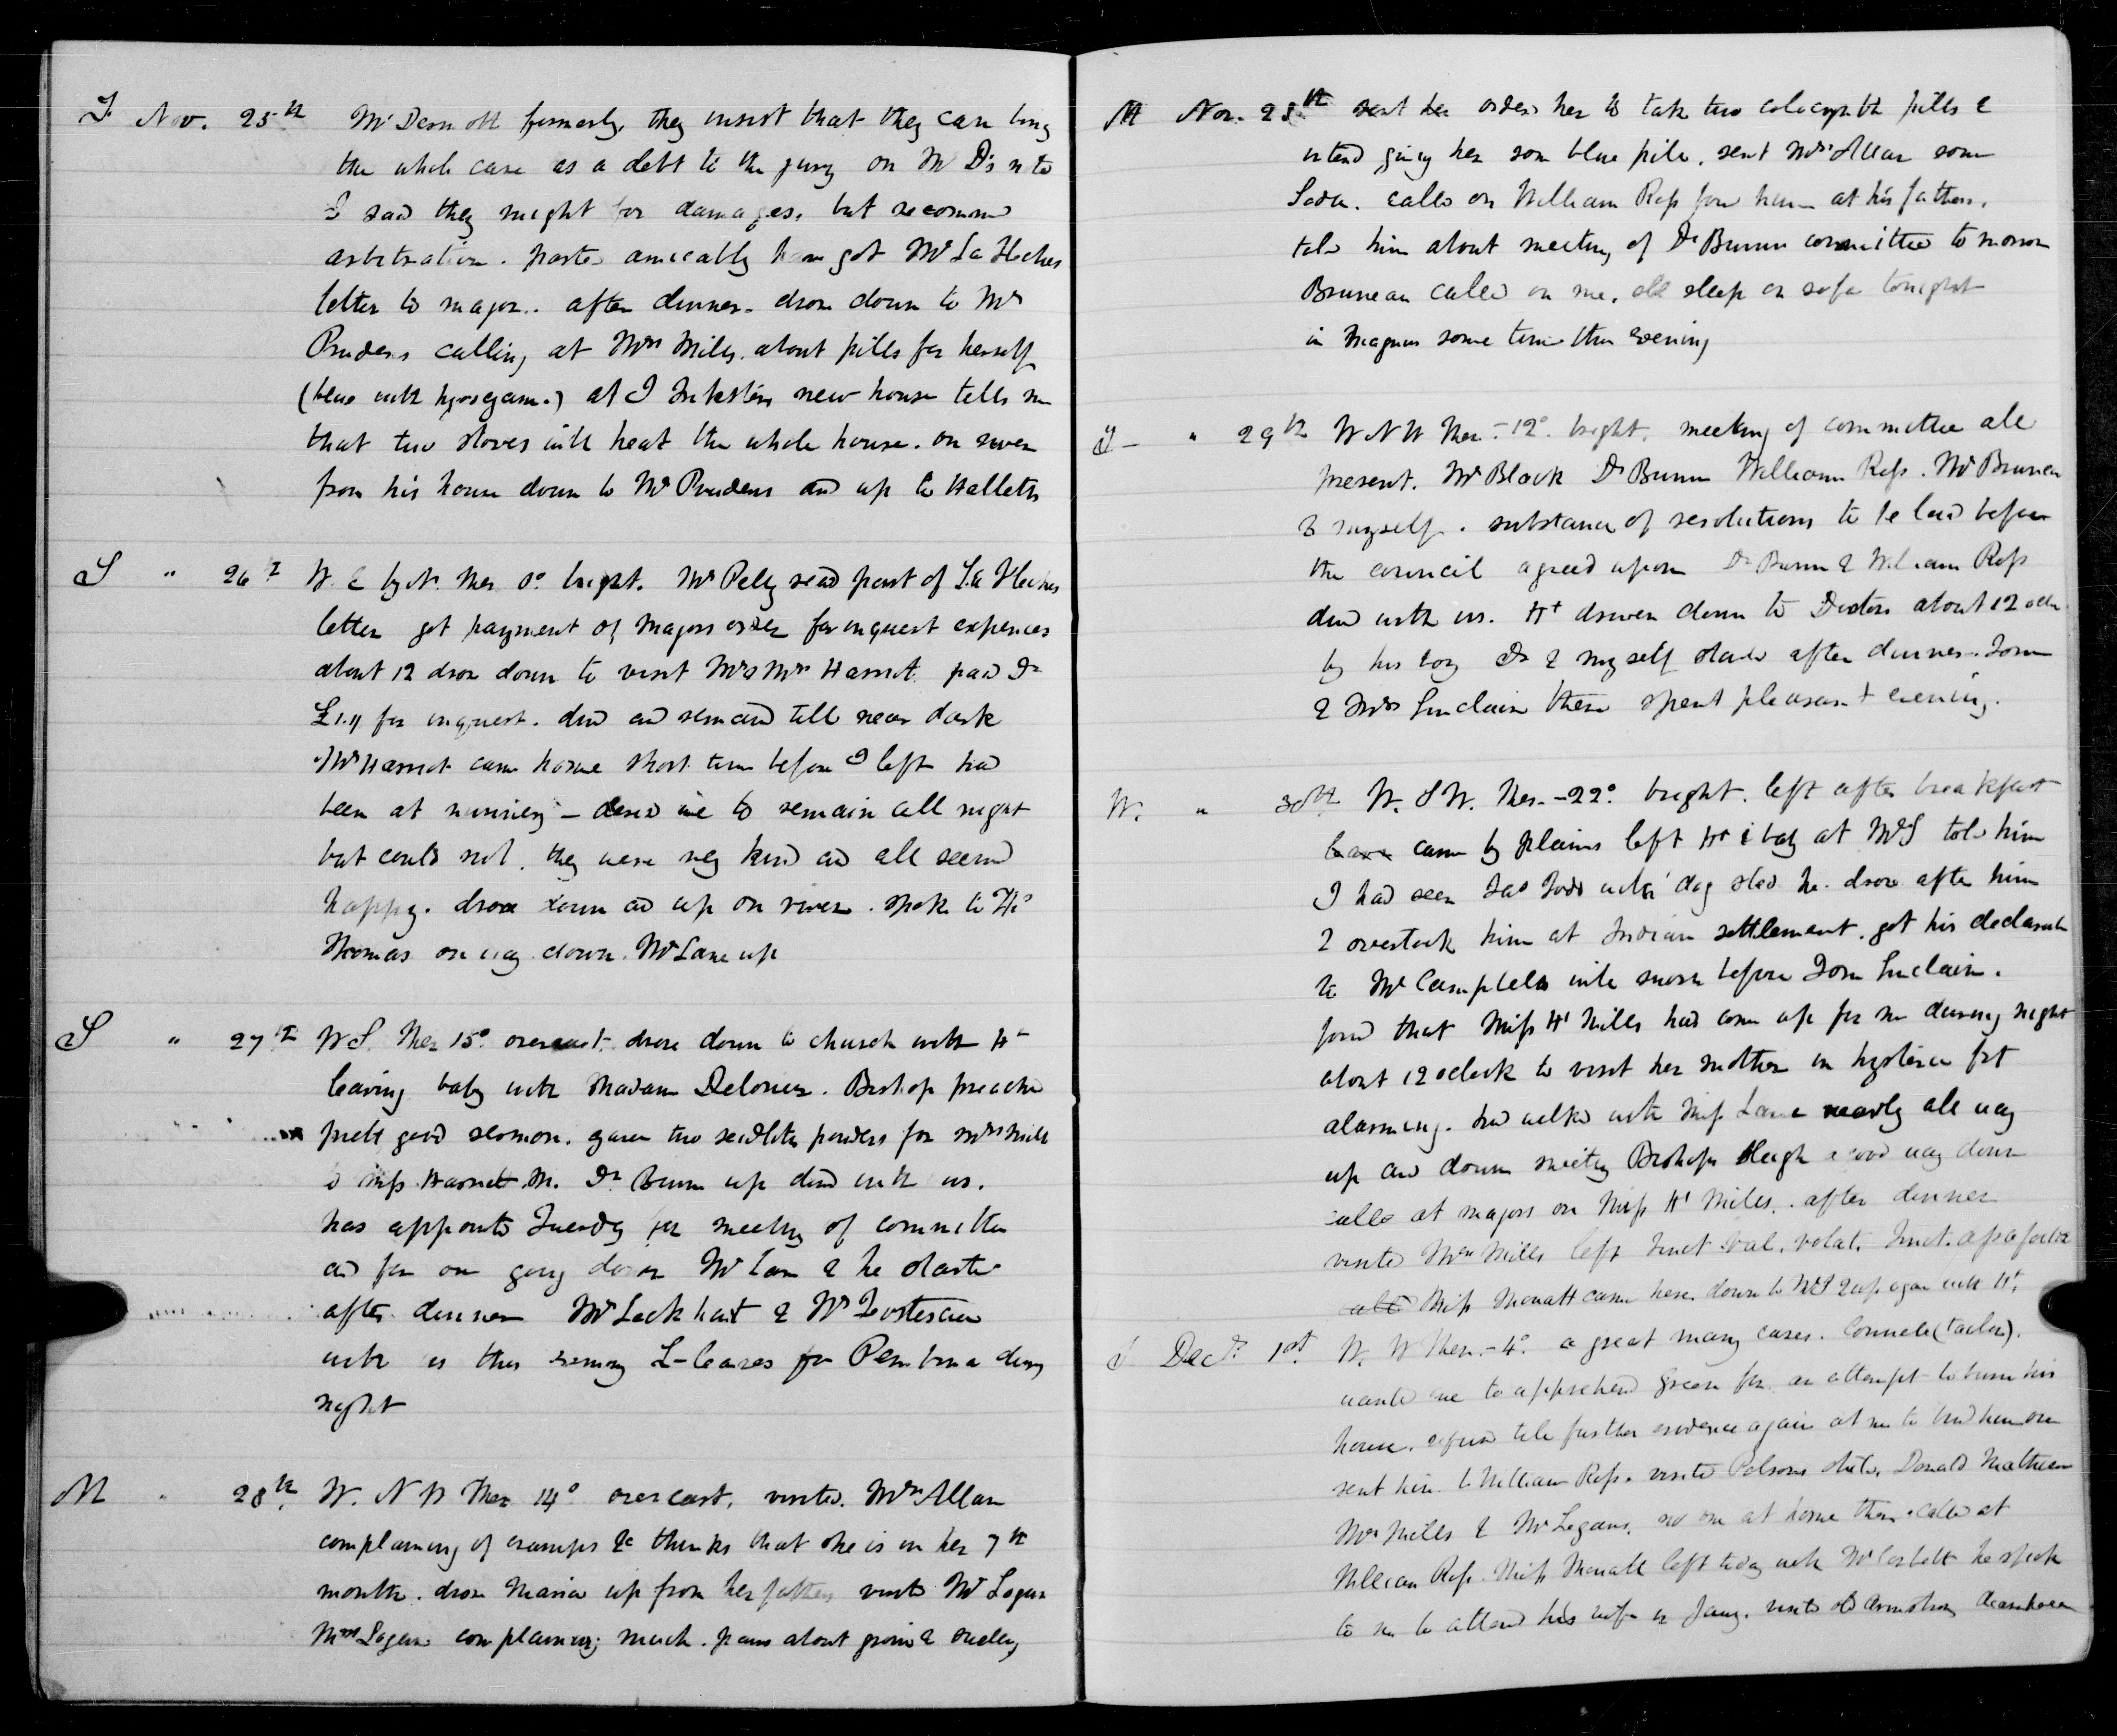 F Nov. 25th McDermott formerly, they insist that they can bring
the whole case as a debt to the jury on McD's note
I said they might for damages, but recommd
arbitration. parted amicably have got Mr La Fleches
letter to major.. after dinner. drove down to Mr
Prudens calling at Mrs Mills. about pills for herself
(blue with hyoscyam.) at J Inksters new house tells me
that two stoves will heat the whole house. on river
from his house down to Mr Prudens and up to Halletts
S " 26th W. E by N. Ther 0° bright. Mr Pelly read part of La Fleches
letter got payment of Majors order for inquest expences
about 12 drove down to visit Mr & Mrs Harriot. paid Dr
£1.11 for inquest. dind and remaind till near dark
Mr Harriot came home short time before I left had
been at nunnery – desird me to remain all night
but could not. they were very kind and all seemd
happy. drove down and up on river. spoke to
Thomas on way down. Mr Lane up
S " 27th W S. Ther 15° overcast. drove down to church with Ht
leaving baby with Madam Delorier. Bishop preachd
pretty good sermon. gave two seidlitz powders for Mrs Mills
to Miss Harriet M. Dr Bunn up dind with us.
has appointd Tuesday for meeting of committee
and for our going down Mr Lane & he started
after dinner Mr Lockhart &
with us this evening L- leaves for Pembina during
night
M " 28th W. N W Ther 14° overcast. visited. Mrs Allan
complaining of cramps &c thinks that she is in her 7th
month. drove Maria up from her fathers visitd Mr Logan
Mrs Logan complaining much. pains about groin &
M Nov. 28th sent her orders her to take two colocynth pills &
intend giving her some blue pill. sent Mrs Allan some
Soda. calld on William Ross found him at his fathers.
told him about meeting of Dr Bunns committee tomorrow
Bruneau called on me. all sleep on sofa tonight
in Magnus some time this evening
T – " 29th W N W Ther. –12°. bright. meeting of committee all
present. Mr Black Dr Bunn William Ross. Mr Bruneau
& myself. substance of resolutions to be laid before
the council agreed upon Dr Bunn & William Ross
dind with us. Ht driven down to Doctors about 12 oclk
by his boy Dr & myself started after dinner. Tom
& Mrs Sinclair there spent pleasant evening.
W. " 30th W. S W. Ther. –22°. bright. left after breakfast
came by plains left Ht & baby at Mr S told him
I had seen Jas with dog sled he. drove after him
& overtook him at Indian settlement. got his declaration
to Mr Campbells will sworn before Tom Sinclair.
found that Miss Ht Mills had come up for me during night
about 12 oclock to visit her mother in hysteric fit
alarming. had walkd with Miss Lane nearly all way
up and down meeting Bishops Sleigh a good way down
calld at majors on Miss Ht Mills. after dinner
visitd Mrs Mills left Tinct Val. volat. Tinct. assafoetid
Miss came here. down to Mr S & up again with Ht.
T Decr 1st. W. W Ther. –4°. a great many cases. (tailor).
wants me to apprehend Green for an attempt to burn his
house. refused till further evidence again at me to bind him over
sent him to William Ross. visited Polsons child. Donald Matheson
Mrs Mills & Mr Logans. no one at home there. calld at
William Ross. Miss left today with Mr Corbett he spoke
to me to attend his wife in Jany. visitd old Armstrong